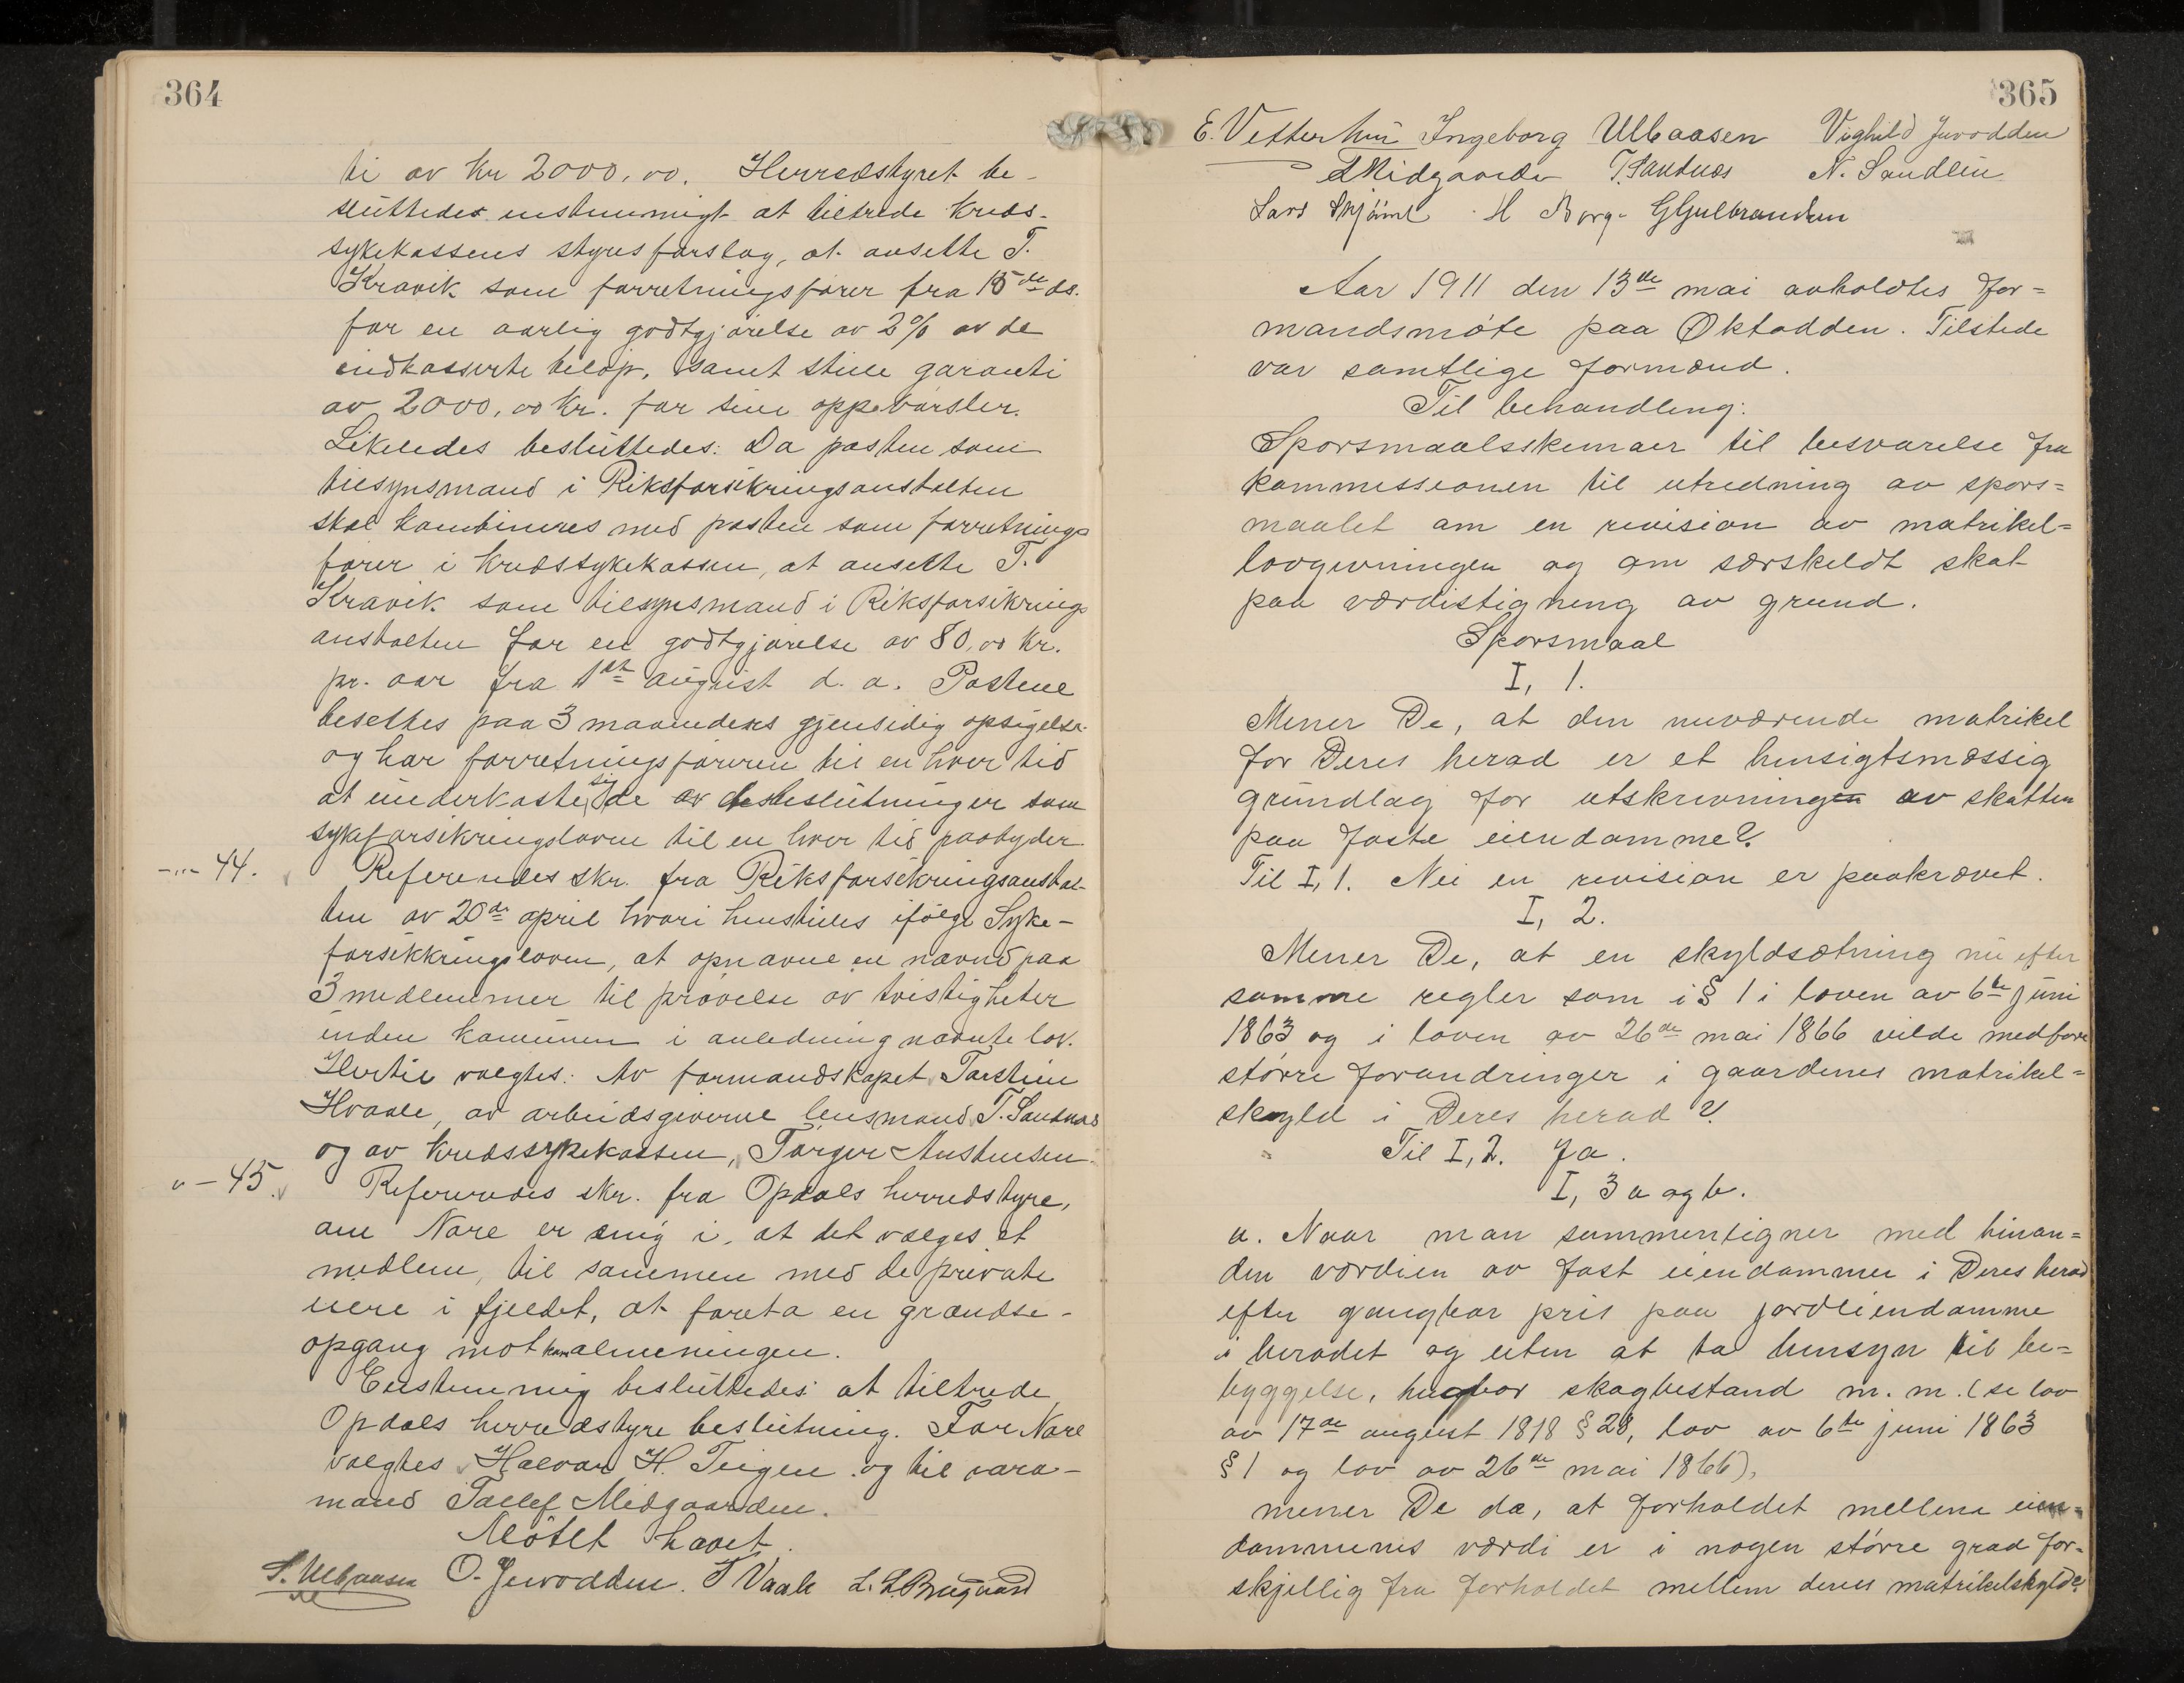 364
ti av Kr 2000,00. Herredstyret be-
sluttedes enstemmigt at tiltræde Kreds-
sykekassens styres forslag, at ansette T.
Kravik som forretningsfører fra 15de ds.
for en aarlig godtgjørelse av 2% av de
indkasserte beløp, samt stille garanti
av 2000,00 Kr. for sine oppebørsler.
Likeledes besluttedes: Da posten som
tilsynsmand i Riksforsikringsanstalten
skal kombineres med posten som forretnings
fører i Kredssykekassen, at ansette T.
Kravik som tilsynsmand i Riksforsikrings
anstalten for en godtgjørelse av 80,00 Kr.
pr. aar fra 1st august d. a. Postene
besettes paa 3 maaneders gjensidig opsigelse
og har forretningsføreren til en hver tid
at underkaste sig de beslutninger som
sykeforsikringsloven til en hver tid paabyder
-"- 44. Refereredes skr. fra Riksforsikringsanstal-
ten av 20de april hvori henstilles ifølge Syke-
forsikkringsloven, at opnævne en nævnd paa
3 medlemmer til prøvelse av tvistigheter
inden komunen i anledning nævnte lov.
Hertil valgtes: Av formandskapet Torstein
Hvaale, av arbeidsgiverne lensmand T. Sandnæs
og av Kredssykekassen, Torger Austensen.
" - 45. Refereredes skr. fra Opdals herredstyre,
om Nore er enig i, at det vælges et
medlem, til sammen med de private
eiere i fjeldet, at foreta en grændse-
opgang mot kom almeningen.
Enstemmig besluttedes at tiltræde
Opdals herredstyre beslutning. For Nore
valgtes Halvor H. Teigen og til vara-
mand Tollef Midgaarden.
Møtet hævet.
S. Ulbaasen O. Juvodden. T Vaale L. L. Bruggaard
365
E. Vetterhus Ingeborg Ulbaasen Vighild Juvodden
T Midgaarden T. Sandnæs N. Sandlin
Lars Skjønne H Borge G Gulbrandsen
Aar 1911 den 13de mai avholdtes for=
mandsmøte paa Øktodden. Tilstede
var samtlige formænd.
Til behandling:
Sporsmaalsskemaer til besvarelse fra
kommissionen til utredning av spors=
maalet om en revision av matrikel=
lovgivningen og om særskeldt skat
paa værdistigning av grund.
Sporsmaal
I, 1.
Mener De, at den nuværende matrikel
for Deres herad er et hensigtsmæssig
grundlag for utskrivningen av skatten
paa faste eiendomme?
Til I, 1. Nei en revision er paakrævet.
I, 2.
Mener De, at en skyldsætning nu efter
samme regler som i § 1 i loven av 6te juni
1863 og i loven av 26de mai 1866 vilde medføre
større forandringer i gaardenes matrikel=
skyld i Deres herad?
Til I, 2. Ja.
I, 3 a og b.
a. Naar man sammenligner med hinan=
den værdien av fast eiendommer i Deres herad
efter gangbar pris paa jordeiendomme
i heradet og uten at ta hensyn til be=
byggelse, hugbar skogbestand m. m. (se lov
av 17de august 1818 § 28, lov av 6te juni 1863
§ 1 og lov av 26de mai 1866),
mener De da, at forholdet mellem eien=
dommenes værdi er i nogen større grad for=
skjellig fra forholdet mellem deres matrikelskyld?